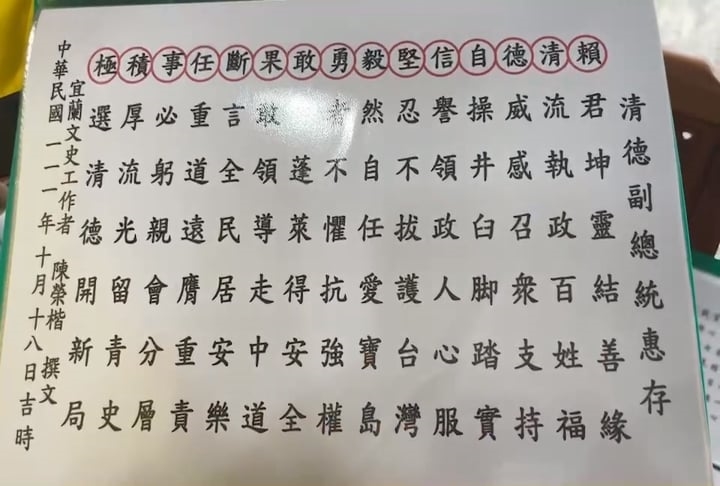 清德副總統惠存
賴君坤靈結善緣
清流執政百姓福
德威感召衆支持
自操井臼脚踏實
信譽領政人心服
堅忍不拔護台灣
毅然自任愛寶島
勇者不懼抗強權
敢蓬萊得安全
果敢領導走中道
斷言全民居安樂
任重道遠膺重責
事必躬親會分層
積厚流光留青史
極選清德開新局
宜蘭文史工作者 陳榮楷 撰文
中華民國一一一年十月十八日吉時